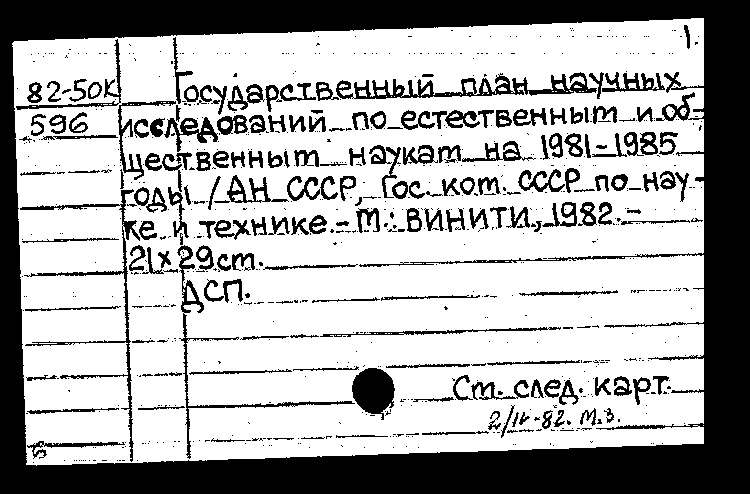 1.
82-50К Государственный план научных
596 исследований по естественным и об-
щественным наукам на 1981-1985
годы / АН СССР, Гос. ком. СССР по нау-
ке и технике. - М.: ВИНИТИ, 1982. -
21 х 29см.
ДСП.
См. след. карт.
2/IV-82. М.З.